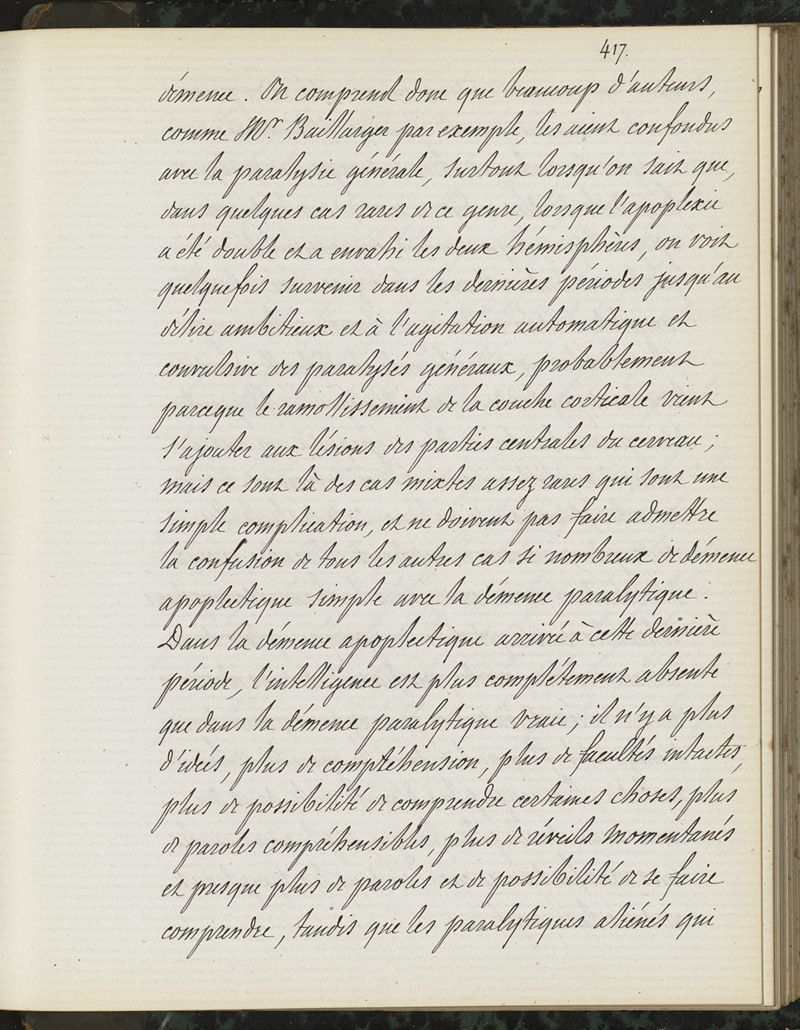 417.
démence. On comprend donc que beaucoup d'auteurs,
comme Mr. Baillarger par exemple, les aient confondus
avec la paralysie générale, surtout lorsqu'on sait que,
dans quelques cas rares de ce genre, lorsque l'apoplexie
a été double et a envahi les deux hémisphères, on voit
quelquefois survenir dans les dernières périodes jusqu'au
délire ambitieux et à l'agitation automatique et
convulsive des paralysés généraux, probablement
parceque le ramollissement de la couche corticale vient
s'ajouter aux lésions des parties centrales du cerveau;
mais ce sont là des cas mixtes assez rares qui sont une
simple complication, et ne doivent pas faire admettre
la confusion de tous les autres cas si nombreux de démence
apoplectique simple avec la démence paralytique.
Dans la démence apoplectique arrivée à cette dernière
période, l'intelligence est plus complétement absente
que dans la démence paralytique vraie; il n'y a plus
d'idées, plus de compréhension, plus de facultés intactes,
plus de possibilité de comprendre certaines choses, plus
de paroles compréhensibles, plus de réveils momentanés
et presque plus de paroles et de possibilité de se faire
comprendre, tandis que les paralytiques aliénés qui